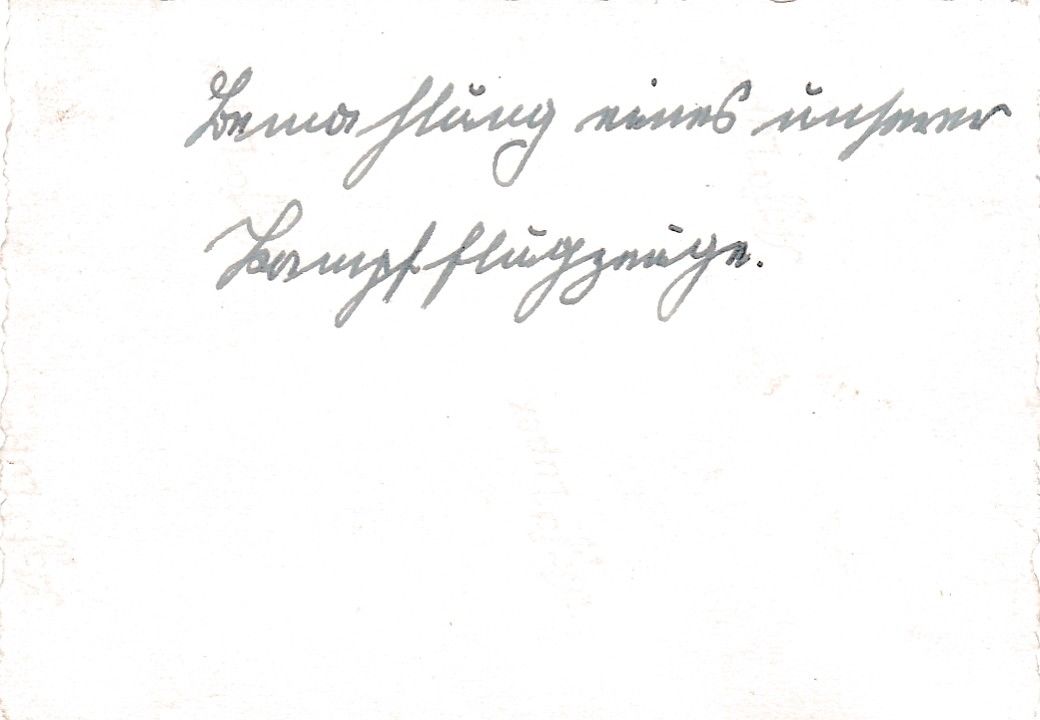 Bemahlung eines unserer
Kampfflugzeuge.